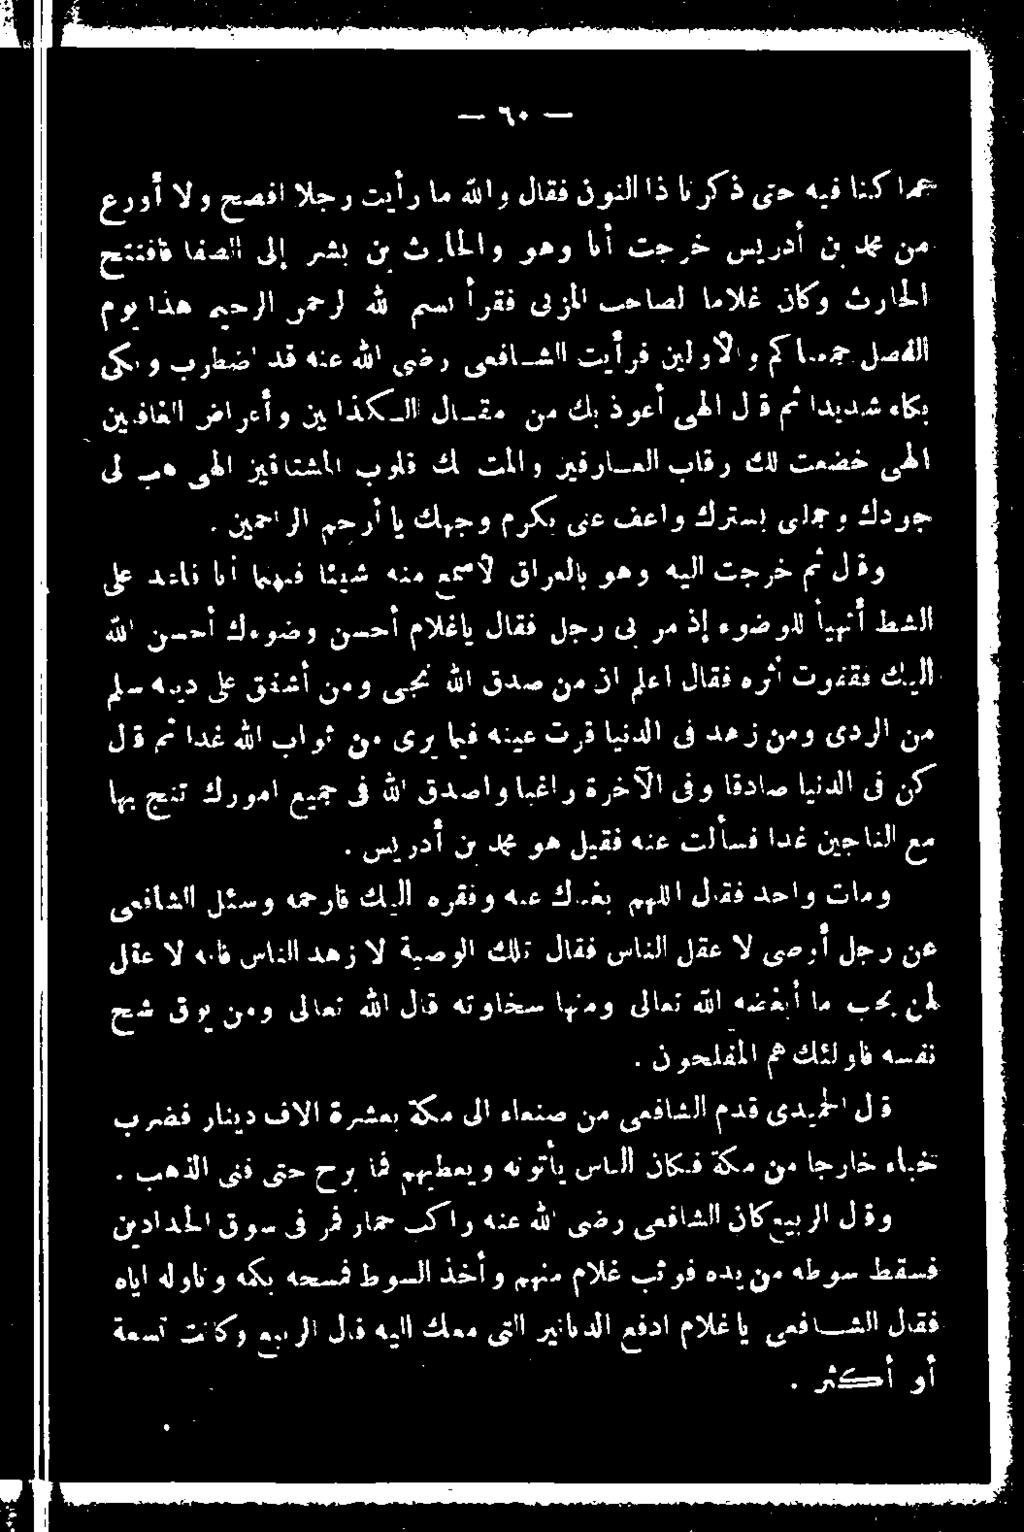 — ٦٠ —
عما كنا فيه حتى ذكرنا ذا النون فقال والله ما رأيت رجلا افصح ولا أورع
من محمد بن أدريس خرجت أنا وهو والحارث بن بشر إلى الصفا فافتتح
الحارث وكان غلاما لصاحب المزنى فقرأ بسم الله الرحمن الرحيم هذا يوم
الفصل جمعناكم والاولين فرأيت الشافعى رضى الله عنه قد اضطرب وبكى
بكاء شديدا ثم قال الهى أعوذ بك من مقال الكذابين وأعراض الغافلين
الهى خضعت لك رقاب العارفين والمت لك قلوب المشتاقين الهى هب لى
جودك وجللنى بسترك واعف عنى بكرم وجهك يا أرحم الراحمين .
وقال ثم خرجت اليه وهو بالعراق لأسمع منه شيئا فبينما أنا قاعد على
الشط أتهيأ للوضوء إذ مر بى رجل فقال ياغلام أحسن وضوءك أحسن الله
اليك فقفوت أثره فقال اعلم ان من صدق الله نجى ومن أشفق على دينه سلم
من الردى ومن زهد فى الدنيا قرت عينه فيما يرى من ثواب الله غدا ثم قال
كن فى الدنيا صادقا وفى الآخرة راغبا واصدق الله فى جميع امورك تنج بها
مع الناجين غدا فسألت عنه فقيل هو محمد بن أدريس .
ومات واحد فقال اللهم بغناك عنه وفقره اليك فارحمه وسئل الشافعى
عن رجل أوصى لا عقل الناس فقال تلك الوصية لا زهد الناس فانه لا عقل
لمن يحب ما أبغضه الله تعالى ومنها سخاوته قال الله تعالى ومن يوق شح
نفسه فاولئك هم المفلحون .
قال الحميدى قدم الشافعى من صنعاء الى مكة بعشرة الاف دينار فضرب
خباءه خارجا من مكة فكان الناس يأتونه ويعطيهم فما برح حتى فنى الذهب .
وقال الربيع كان الشافعى رضى الله عنه راكب حمار فمر فى سوق الحدادين
فسقط سوطه من يده فوثب غلام منهم وأخذ السوط فمسحه بكمه وناوله اياه
فقال الشافعى ياغلام ادفع الدنانير التى معك اليه قال الربيع وكانت تسعة
أو أكثر .